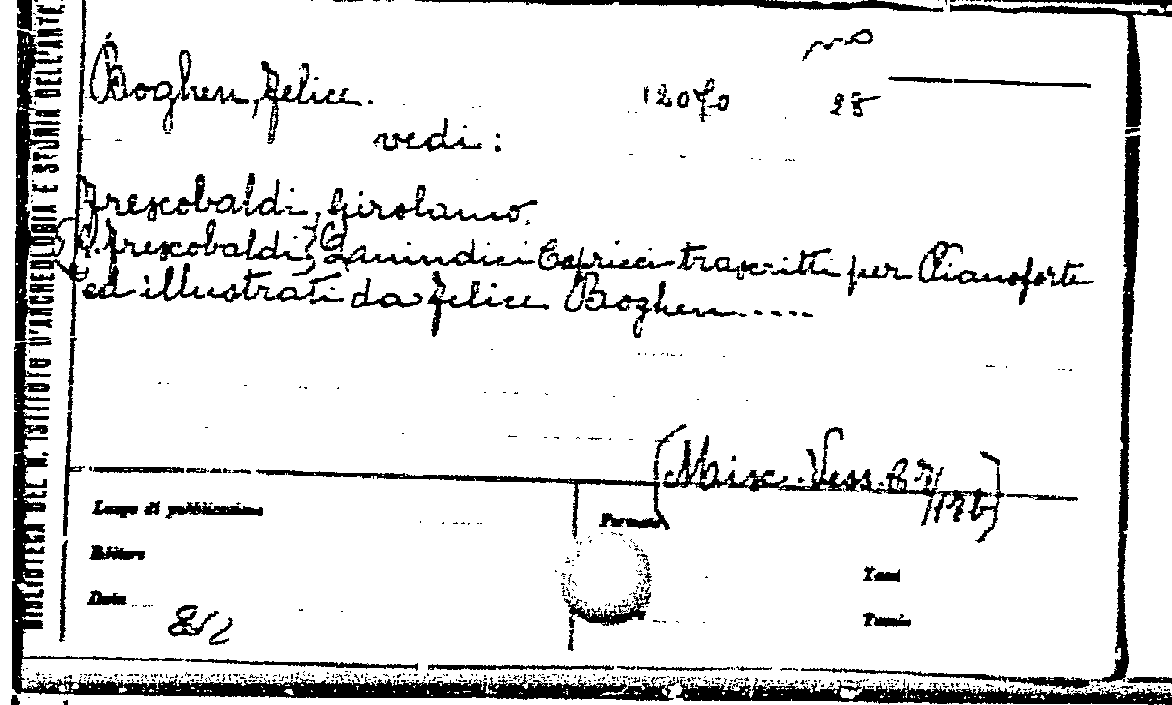 BIBLIOTECA DEL R. ISTITUTO D'ARCHEOLOGIA E STORIA DELL'ARTE
Boghen, Felice.
12070 25
vedi:
Frescobaldi, Girolamo.
G. Frescobaldi, Quindici Capricci trascritti per Pianoforte
ed illustrati da Felice Boghen.....
(Misc. Vess.
Luogo di pubblicazione
Formato
Editore
Data
Tomi